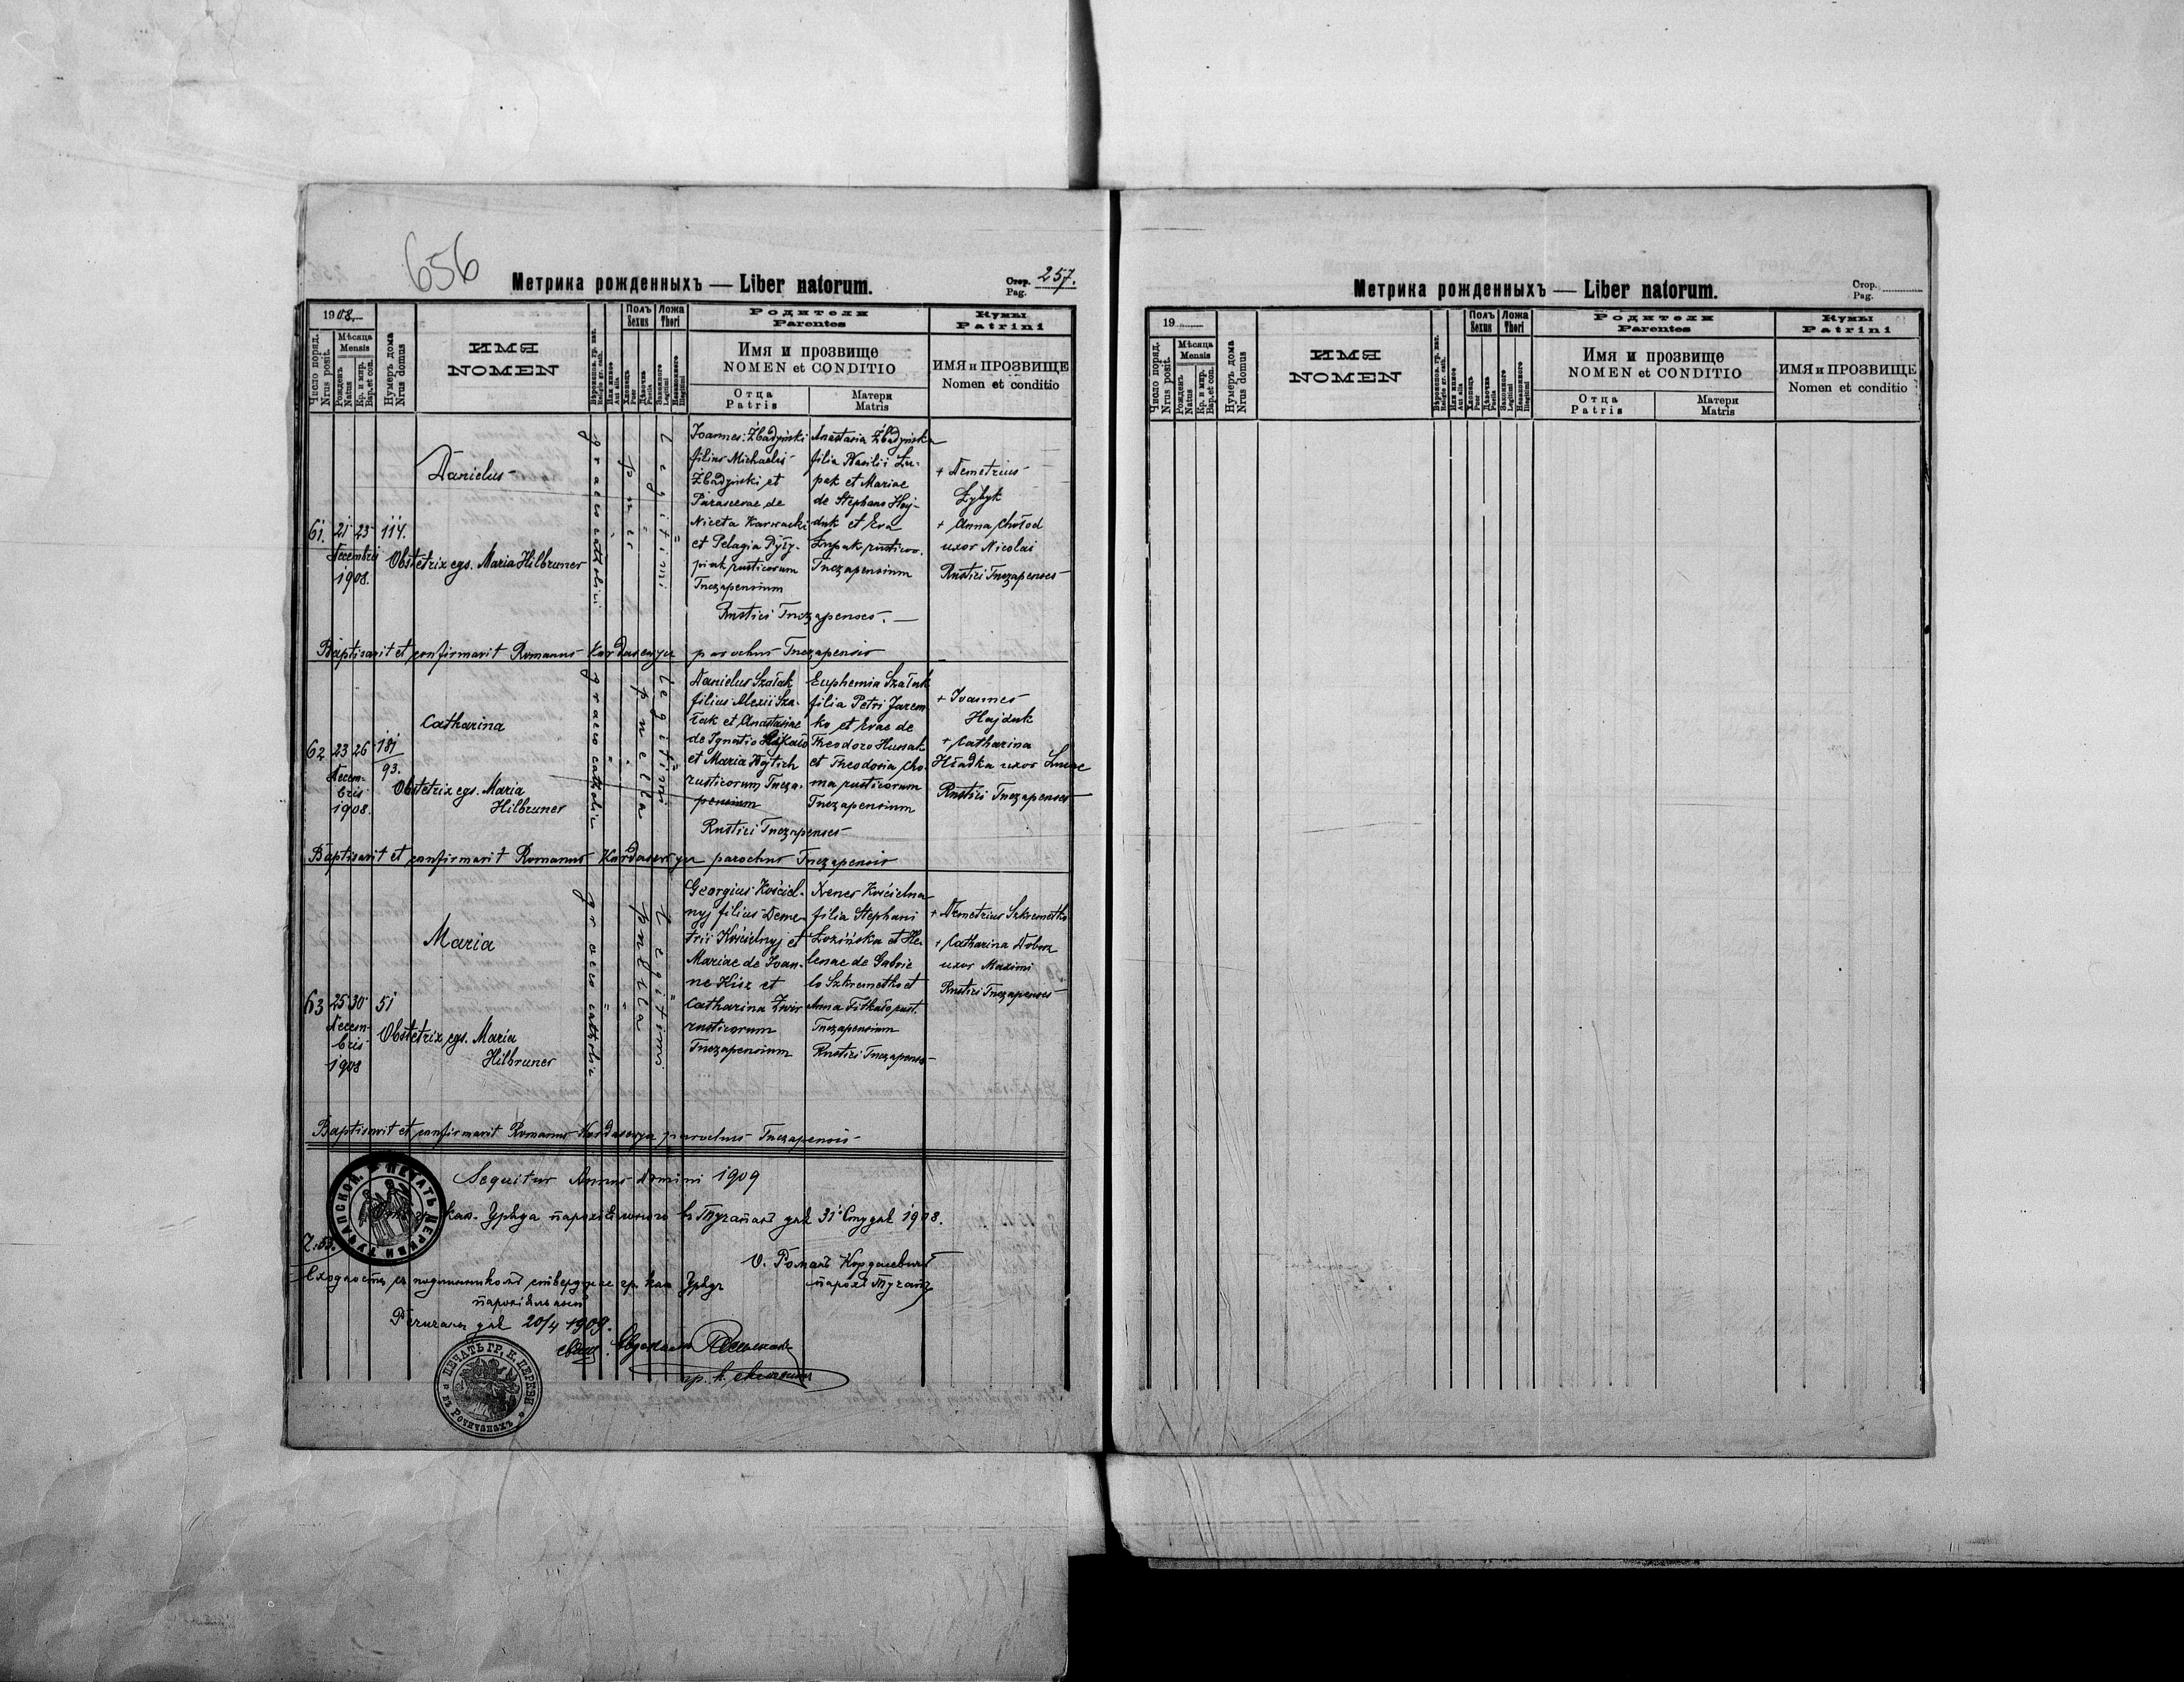 656
Метрика рожденныхъ — Liber natorum.
Стор. Pag. 257.
1908.
Число поряд. Nrus posit.
Мѣсяца Mensis
Рожденъ Natus
Кр. и мир. Bap. et con.
Нумеръ дома Nrus domus
ИМЯ
NOMEN
Полъ Sexus
Ложа Thori
Родители
Parentes
Имя и прозвище
NOMEN et CONDITIO
Отца Patris
Матери Matris
Кумы
Patrini
ИМЯ и ПРОЗВИЩЕ
Nomen et conditio
61. 21 23 114.
Decembris
1908.
Danielus
Obstetrix egs. Maria Hilbruner
graeco catholici
puer
legitimi
Joannes Żbadyński
filius Michaelis
Żbadyński et
Parascevae de
Niceta Karwacki
et Pelagia
rusticorum
Tuczapensium
Anastasia Żbadyńska
filia Wasilii Łu-
pak et Mariae
de Stephano Haj-
duk et Eva
Łupak rusticor.
Tuczapensium
Rustici Tuczapenses. —
+ Demetrius
Łyłyk
+ Anna Chołod
uxor Nicolai
Rustici Tuczapenses
Baptisavit et confirmavit Romanus Kordasewycz parochus Tuczapensis
62 23 26 181
93.
Decem-
bris
1908.
Catharina
Obstetrix egs. Maria
Hilbruner
graeco catholic
puella
legitimi
Danielus Szałak
filius Alexii Sza-
łak et Anastasiae
de Ignatio
et Maria Wojtich
rusticorum Tucza-
pensium
Euphemia Szałak
filia Petri Jarem-
ko et Evae de
Theodoro Hussak
et Theodosia Cho-
ma rusticorum
Tuczapensium
Rustici Tuczapenses
+ Joannes
Hajduk
+ Catharina
Hładka uxor Lucae
Rustici Tuczapenses
Baptisavit et confirmavit Romanus Kordasewycz parochus Tuczapensis
63 25 30 51
Decem-
bris
1908
Maria
Obstetrix egs. Maria
Hilbruner
graeco catholic
puella
legitimi
Georgius Kościel-
nyj filius Deme-
trii Kościelnyj et
Mariae de Joan-
ne Kisz et
Catharina Zwir
rusticorum
Tuczapensium
Xenes Kościelna
filia Stephani
Łozińska et He-
lenae de Gabrie
lo Szkremetko et
Anna Fitkało rust.
Tuczapensium
Rustici Tuczapenses
+ Demetrius Szkremetko
+ Catharina Dobusz
uxor Maximi
Rustici Tuczapenses
Baptisavit et confirmavit Romanus Kordasewycz parochus Tuczapensis
Sequitur Annus Domini 1909
ПЕЧАТЬ ЦЕРКВИ ТУЧАПСКОЙ.
кат. Уряда парохіяльного въ Тучапахъ дня 31 Студня 1908.
о. Романъ Кордасевичъ
парохъ Тучапъ
Сходность съ подлинникомъ стверджае гр. кат. Урядъ
парохіяльный
Рочичахъ дня 20/4 1909.
ПЕЧАТЬ ГР. К. ЦЕРКВИ въ РОЧИЧАХЪ
Метрика рожденныхъ — Liber natorum.
Стор. Pag.
19
Число поряд. Nrus posit.
Мѣсяца Mensis
Рожденъ Natus
Кр. и мир. Bap. et con.
Нумеръ дома Nrus domus
ИМЯ
NOMEN
Полъ Sexus
Ложа Thori
Родители
Parentes
Имя и прозвище
NOMEN et CONDITIO
Отца Patris
Матери Matris
Кумы
Patrini
ИМЯ и ПРОЗВИЩЕ
Nomen et conditio